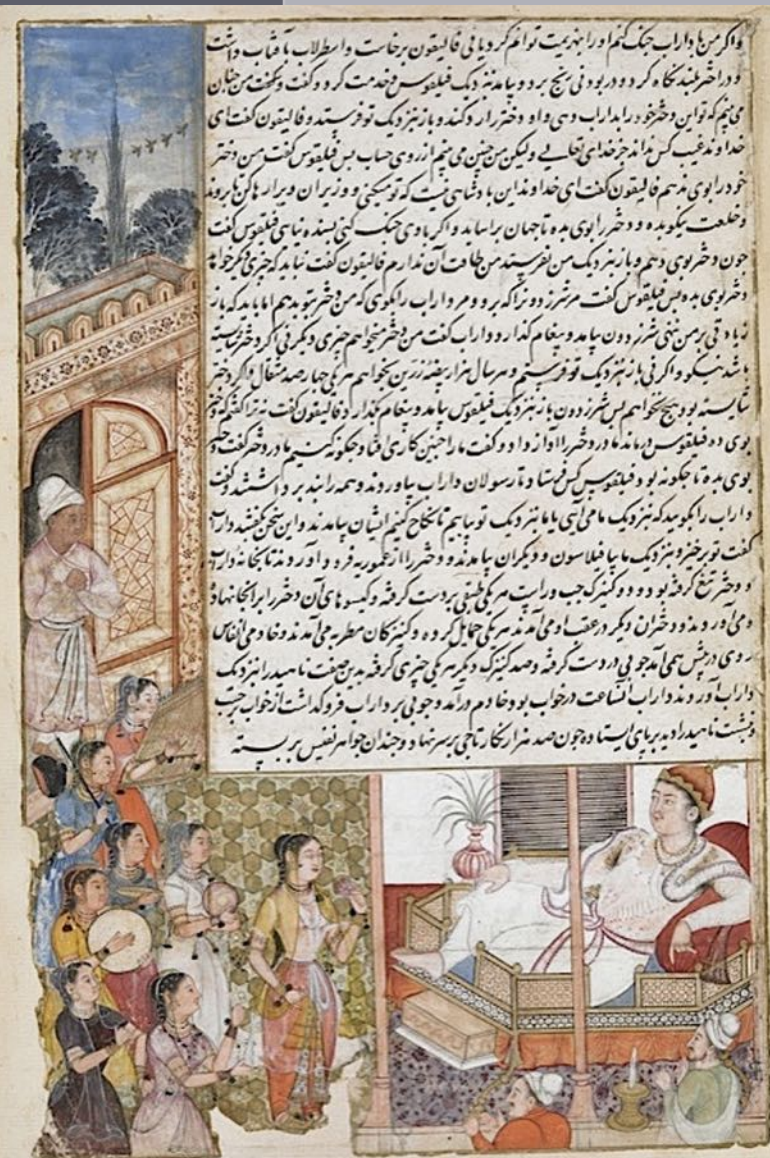 و اگر من با داراب جنگ کنم او را بهزیمت توانم کرد یا نی فالیقون برخاست و اسطرلاب با فتاب داشت
و در اختر بلند نگاه کرد و در بودنی رنج برد و بیامد نزدیک فیلقوس و خدمت کرد و گفت من چنان
می بینم که تو این دختر خود را بداراب دهی و او دختر را رد کند و باز نزدیک تو فرستد و فالیقون گفت ای
خداوند غیب کس نداند جز خدای تعالی ولیکن من چنین می بینم از روی حساب پس فیلقوس گفت من دختر
خود را بوی ندهم فالیقون گفت ای خداوند این پادشاهی نیست که تو میکنی و وزیران و
و خلعت نیکو بده و دختر را بوی بده تا جهان بر اساید و اگر با وی جنگ کنی بسنده نیایی فیلقوس گفت
چون دختر بوی دهم و باز نزدیک من نفرستد من طاقت آن ندارم فالیقون گفت نباید که چیزی دیگر خواهد
دختر بوی بده پس فیلقوس گفت مر شرزدون را که برو و مر داراب را بگوی که من دختر بتو بدهم اما باید که باز
زیادتی بر من ننهی شرزدون بیامد و پیغام گذارد و داراب گفت من دختر میخواهم چیزی دیگر نی اگر دختر شایسته
باشد نیکو و اگر نی باز نزدیک تو فرستم و هر سال هزار بیضه زرین بخواهم هر یکی چهار صد مثقال و اگر دختر
شایسته بود هیچ نخواهم پس شرزدون باز نزدیک فیلقوس بیامد و پیغام گذارد فالیقون گفت نه ترا گفتم که دختر
بوی ده فیلقوس درماند مادر دختر را آواز داد و گفت ما را چنین کاری افتاد چگونه کنیم مادر دختر گفت
بوی بده تا چگونه بود فیلقوس کس فرستاد تا رسولان داراب بیاوردند و همه را بند برداشتند و گفت
داراب را بگویید که نزدیک ما می آیی یا ما نزدیک تو بیاییم تا نکاح کنیم ایشان بیامدند و این سخن گفتند داراب
گفت تو برخیز و نزدیک ما بیا فیلاسون و دیگران بیامدند و دختر را از عموریه فرود آوردند تا بخانه داراب
و دختر تیغ گرفته بود و دو کنیزک چپ و راست هر یکی طبقی بر دست گرفته و گیسوهای آن دختر را بر آنجا نهاده
و می آوردند و دختران دیگر در عقب او می آمدند هر یکی حمایل کرده و کنیزکان مطربه می آمدند و خادمی
روی در پیش همی آمد چوبی در دست گرفته و صد کنیزک دیگر هر یکی چیزی گرفته بدین صفت ناهید را نزدیک
داراب آوردند و داراب آنساعت در خواب بود خادم درآمد و چوبی بر داراب فرو گذاشت از خواب برجست
و بنشست ناهید را دید بر پای ایستاده چون صد هزار نگار تاجی بر سر نهاد و چندان جواهر نفیس بر بسته